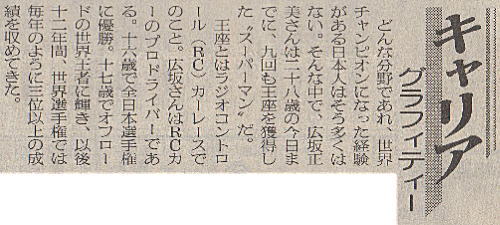 キャリア
グラフィティー
　どんな分野であれ、世界
チャンピオンになった経験
がある日本人はそう多くは
ない。そんな中で、広坂正
美さんは二十八歳の今日ま
でに、九回も王座を獲得し
た〝スーパーマン〟だ。
　王座とはラジオコントロ
ール（ＲＣ）カーレースで
のこと。広坂さんはＲＣカ
ーのプロドライバーであ
る。十六歳で全日本選手権
に優勝。十七歳でオフロー
ドの世界王者に輝き、以後
十二年間、世界選手権では
毎年のように三位以上の成
績を収めてきた。